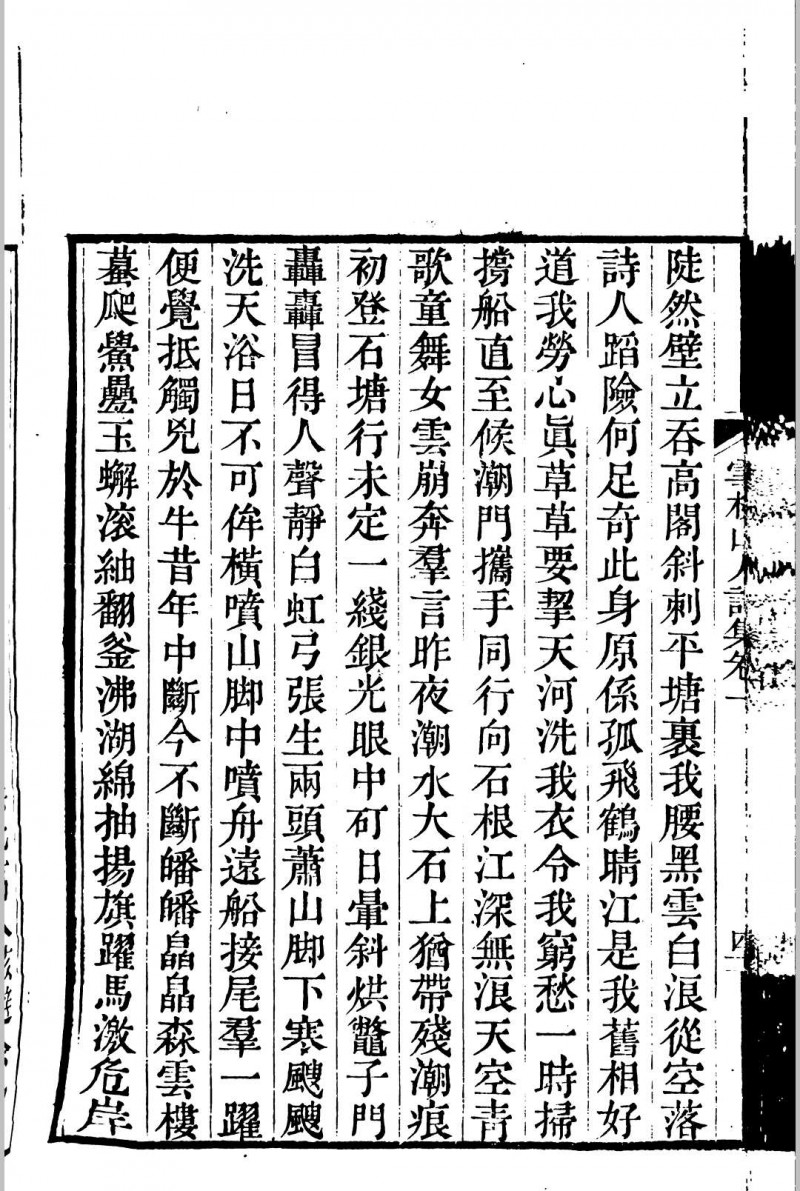 陡然壁立吞高閣斜刺平塘裹我腰黑雲白浪從空落
詩人蹈險何足奇此身原係孤飛鶴晴江是我舊相好
道我勞心眞草草要挈天河洗我衣令我窮愁一時掃
撐船直至候潮門攜手同行向石根江深無浪天空青
歌童舞女雲崩奔羣言昨夜潮水大石上猶帶殘潮痕
初登石塘行未定一綫銀光眼中矴日暈斜烘鼈子門
轟轟冒得人聲靜白虹弓張生兩頭蕭山脚下寒颼颼
洗天浴日不可侔橫噴山脚中噴舟遠船接尾羣一躍
便覺抵觸兕於牛昔年中斷今不斷皤皤皛皛森雲樓
墓爬鱟疊玉蠏滾紬翻釜沸湖綿抽揚旗躍馬激危岸
山人詩集卷一
四